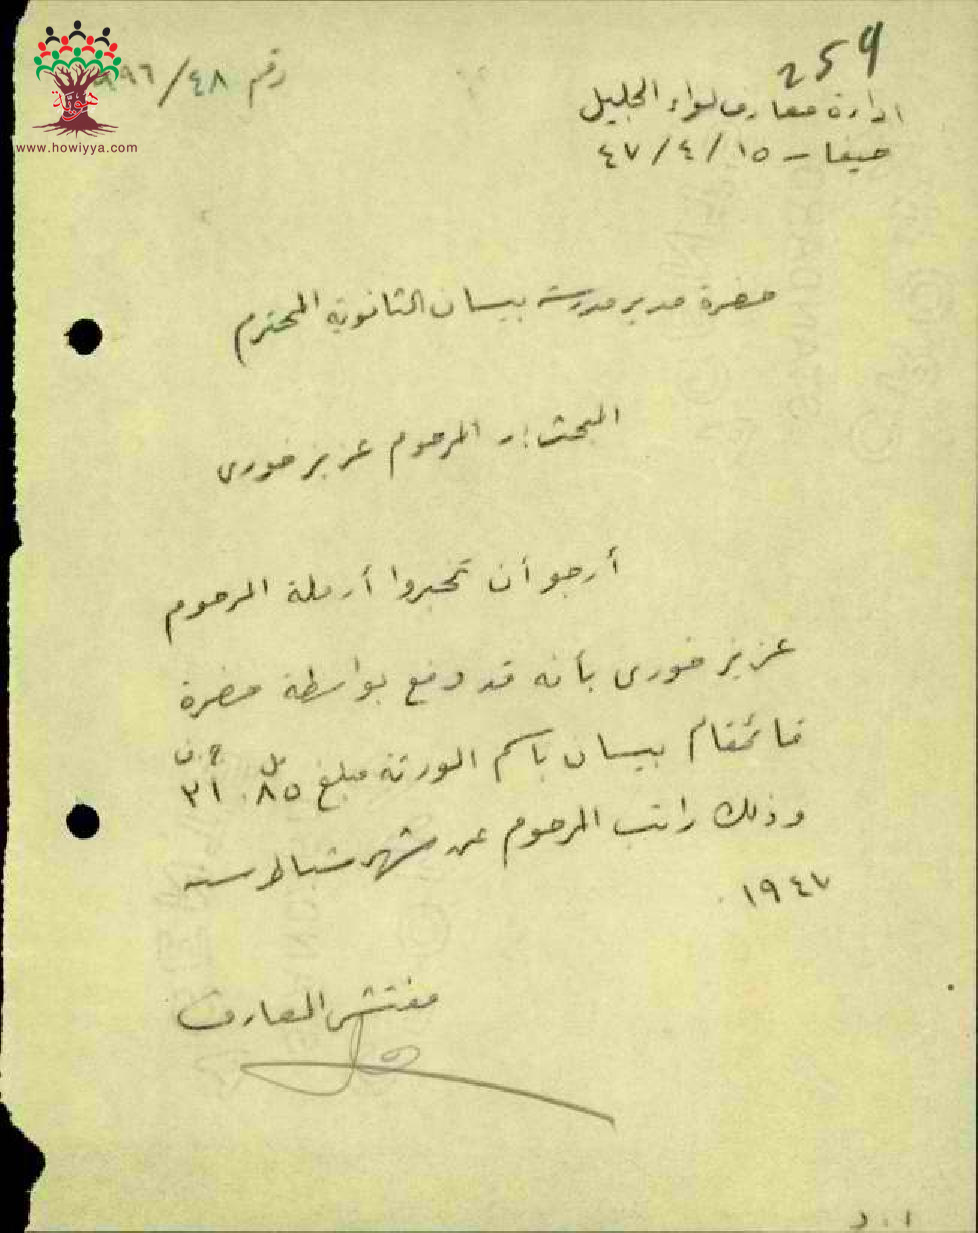 259
رقم ٩٩٦/٤٨
هوية
www.howiyya.com
ادارة معارف لواء الجليل
حيفا - ١٥/٤/٤٧
حضرة مدير مدرسة بيسان الثانوية المحترم
المبحث :- المرحوم عزيز خوري
أرجو أن تخبروا أرملة المرحوم
عزيز خورى بأنه قد دفع بواسطة حضرة
قائمقام بيسان باسم الورثة مبلغ ٨٥٠ مل ٣١ ج.ف
وذلك راتب المرحوم عن شهر شباط سنة
١٩٤٧.
مفتش المعارف
ا.د